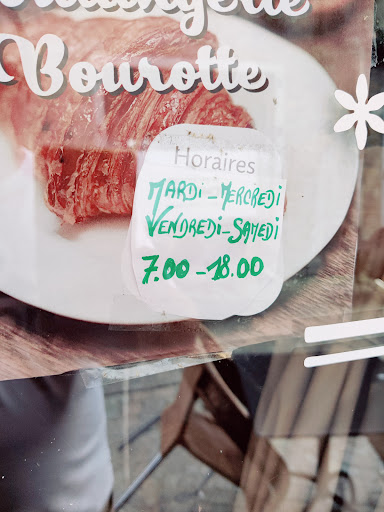 Bourotte
Horaires
MARDi - MERCREDi
VENDREDi - SAMEDi
7.00 - 18.00